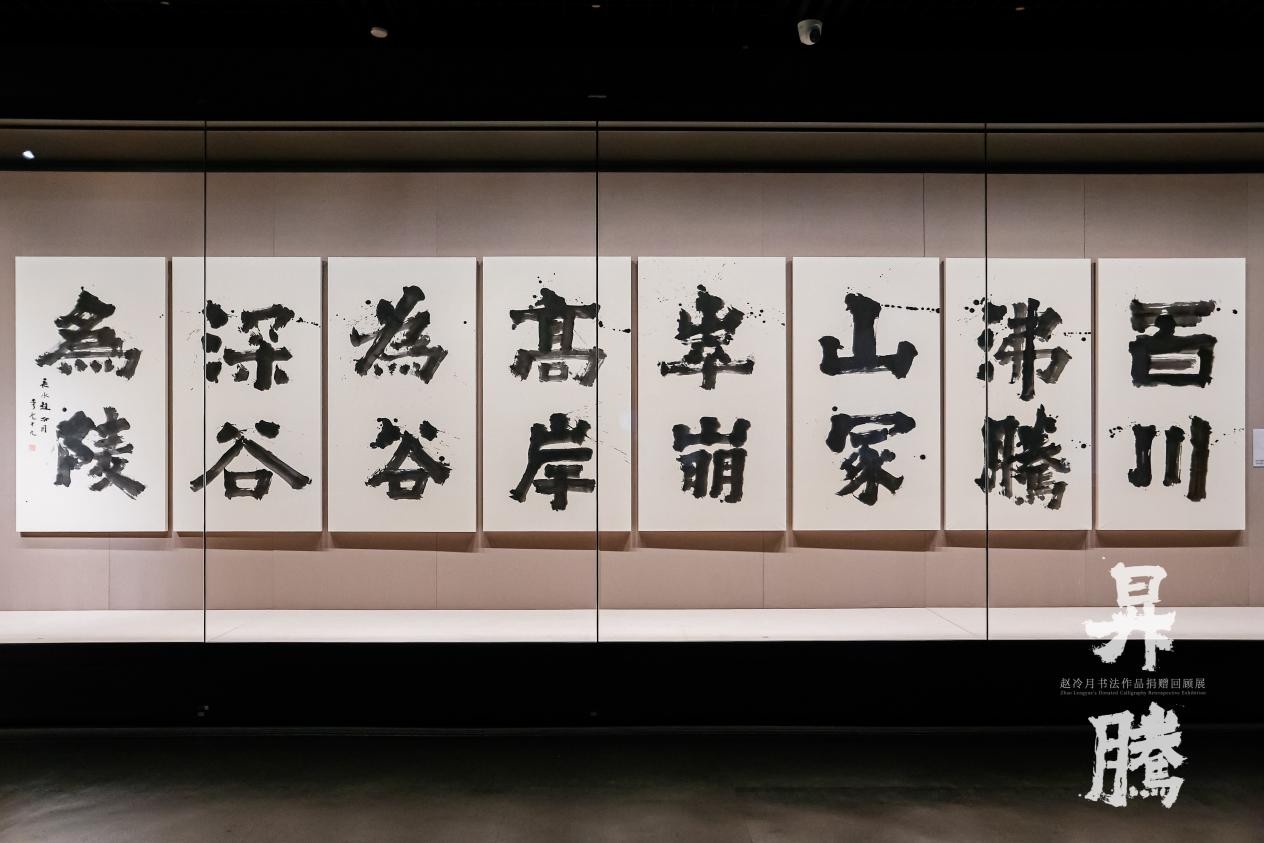 百川
沸騰
山冢
崒崩
髙岸
為谷
深谷
為陵
昇
赵冷月书法作品捐赠回顾展
Zhao Lengyue's Donated Calligraphy Retrospective Exhibition
騰